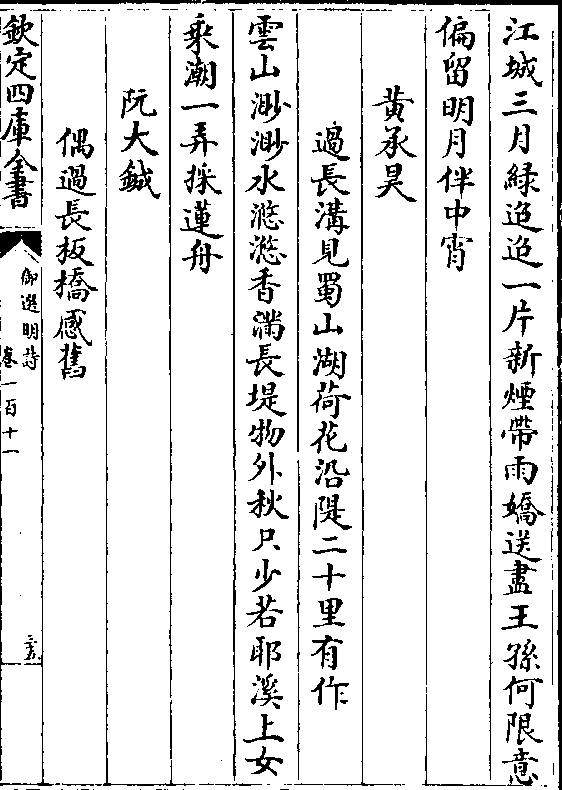 江城三月綠迢迢一片新煙帶雨嬌送盡王孫何限意
偏留明月伴中宵
黄承昊
過長溝見蜀山湖荷花沿隄二十里有作
雲山渺渺水悠悠香滿長堤物外秋只少若耶溪上女
乘潮一弄採蓮舟
阮大鋮
偶過長板橋感舊
欽定四庫全書
御選明詩
卷一百十一
三五